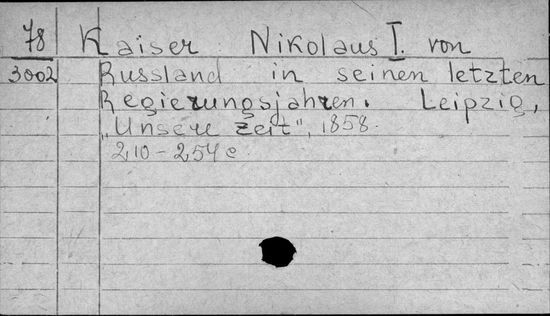 78 Kaiser Nikolaus I. von
3002 Russland in seinen letzten
Regierungsjahren. Leipzig,
„Unsere Zeit", 1858.
210-254 c